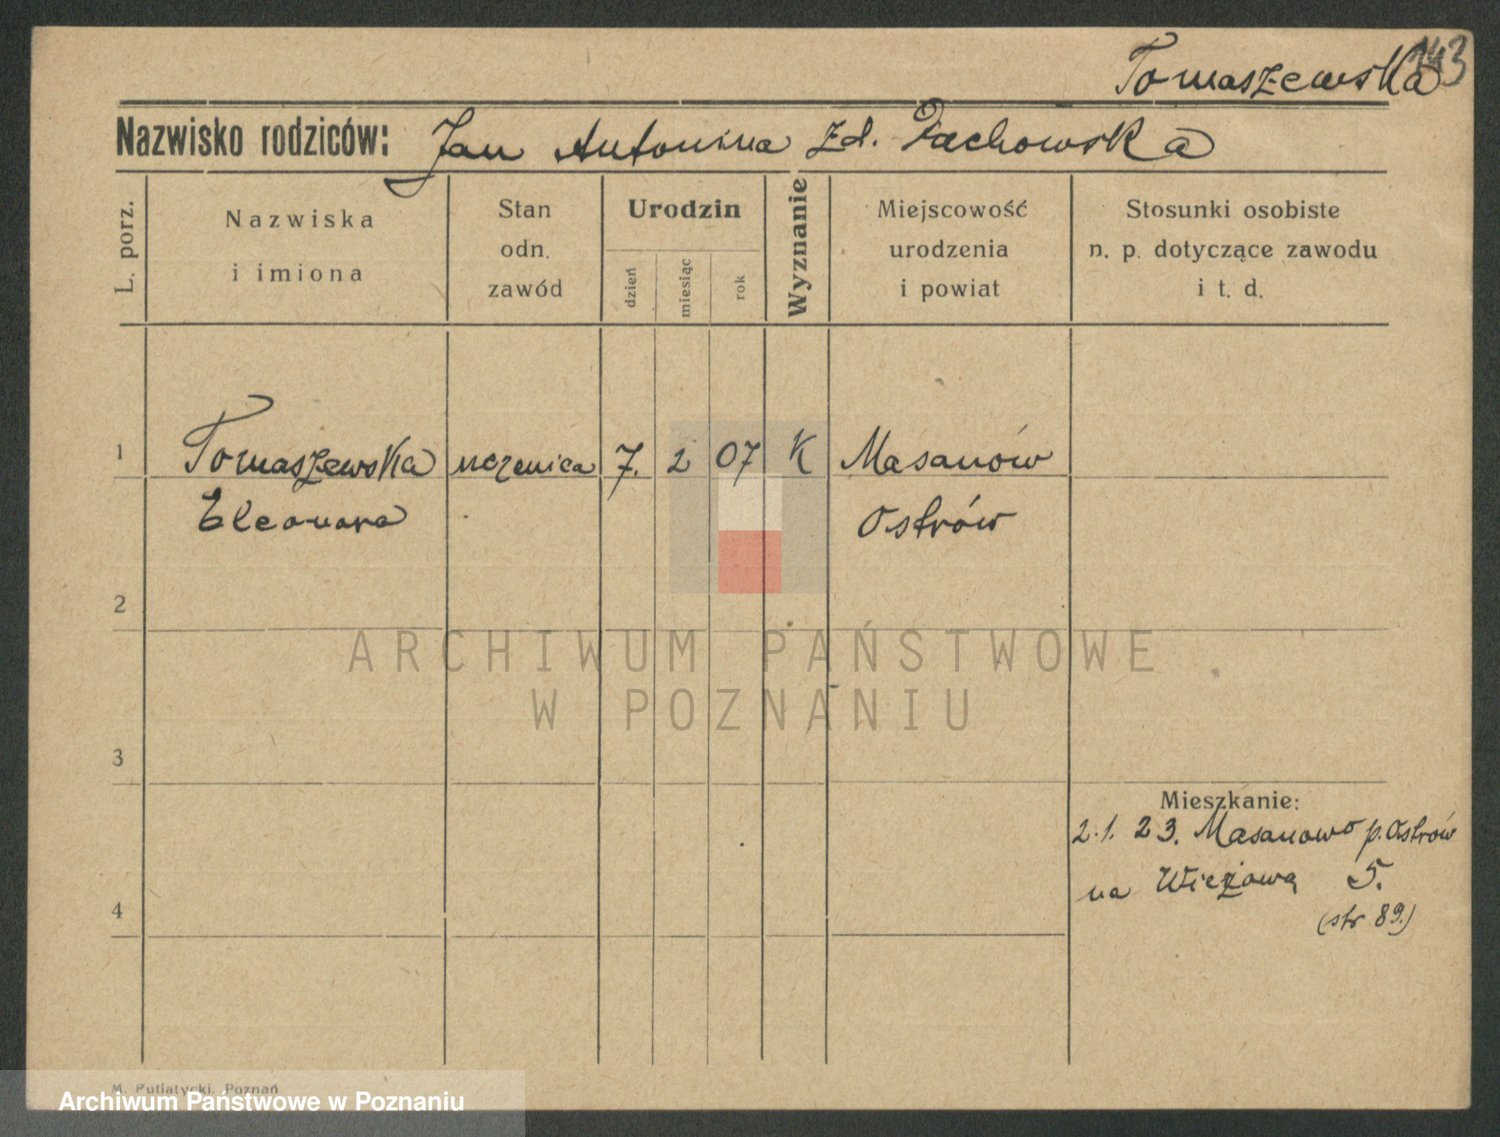 Tomaszewska 143
Nazwisko rodziców: Jan Antonina zd.
L. porz.
Nazwiska
i imiona
Stan
odn.
zawód
Urodzin
dzień
miesiąc
rok
Wyznanie
Miejscowość
urodzenia
i powiat
Stosunki osobiste
n. p. dotyczące zawodu
i t. d.
1 Tomaszewska uczenica 7. 2 07 K Masanów
Eleonora Ostrów
2
ARCHIWUM PAŃSTWOWE
W POZNANIU
3
Mieszkanie:
2.1. 23. Masanowo p. Ostrów
na Wieżową 5.
4
(str 89.)
M. Putiatycki, Poznań
Archiwum Państwowe w Poznaniu